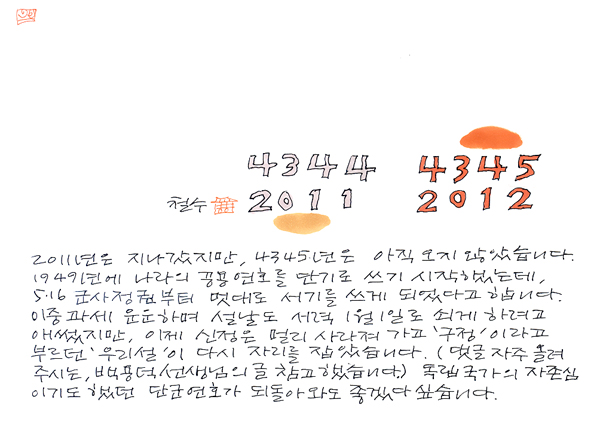 4344 4345
철수 2011 2012
2011년은 지나갔지만, 4345년은 아직 오지 않았습니다.
1949년에 나라의 공용연호를 단기로 쓰기 시작했는데,
5·16 군사정권부터 멋대로 서기를 쓰게 되었다고 합니다.
이중과세 운운하며 설날도 서력 1월 1일로 쇠게 하려고
애썼지만, 이제 신정은 멀리 사라져 가고 '구정'이라고
부르던 '우리설'이 다시 자리를 잡았습니다. (댓글 자주 올려
주시는, 백용덕선생님의 글 참고했습니다.) 독립국가의 자존심
이기도 했던 단군연호가 되돌아와도 좋겠다 싶습니다.